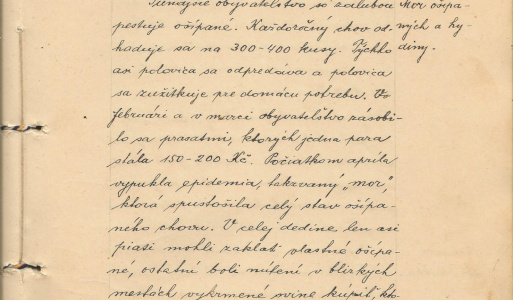 Tunajšie obyvateľstvo so záľubou
pestuje ošípané. Každoročný chov od-
haduje sa na 300-400 kusy. Týchto
asi polovica sa odpredáva a polovica
sa zužitkuje pre domácu potrebu. V
februári a v marci obyvateľstvo zásobi-
lo sa prasatmi, ktorých jedna para
stála 150-200 Kč. Počiatkom apríla
vypukla epidemia, takzvaný „mor",
ktorá spustošila celý stav ošípa-
ného chovu. V celej dedine len asi
piati mohli zaklať vlastné ošípa-
né, ostatní boli nútení v blízkych
mestách vykrmené svine kúpiť, kto-
Mor ošípa-
ných a hy-
diny.